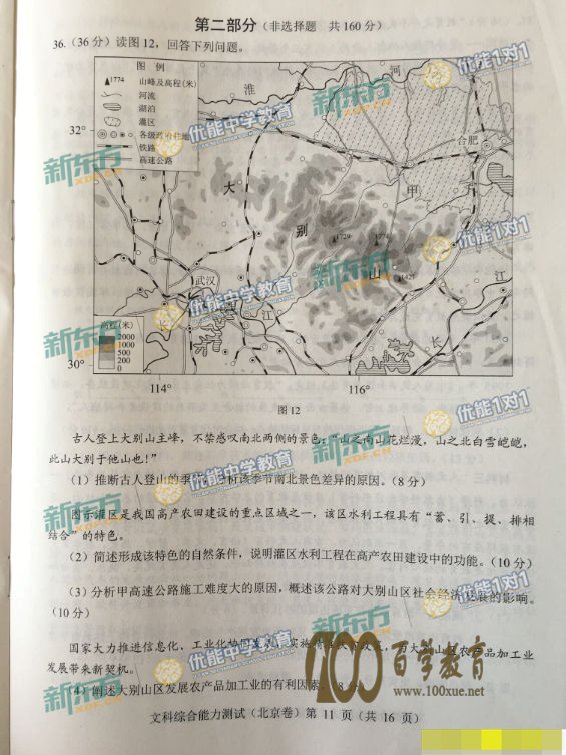 第二部分（非选择题 共160分）
36.（36分）读图12，回答下列问题。
图例
▲1774 山峰及高程(米)
河流
湖泊
灌区
各级政府驻地
铁路
高速公路
淮 河
32°
合肥
大 甲
别
1729 1774
山
武汉
江
长 江
长
高程(米)
2000
1000
500
200
0
30°
114° 116°
图12
古人登上大别山主峰，不禁感叹南北两侧的景色：“山之南山花烂漫，山之北白雪皑皑，
此山大别于他山也！”
（1）推断古人登山的季节，分析该季节南北景色差异的原因。（8分）
图示灌区是我国高产农田建设的重点区域之一，该区水利工程具有“蓄、引、提、排相
结合”的特色。
（2）简述形成该特色的自然条件，说明灌区水利工程在高产农田建设中的功能。（10分）
（3）分析甲高速公路施工难度大的原因，概述该公路对大别山区社会经济发展的影响。
（10分）
国家大力推进信息化、工业化
大别山区农产品加工业
发展带来新契机。
（4）阐述大别山区发展农产品加工业的有利因素。（8分）
文科综合能力测试（北京卷）第 11 页（共 16 页）
新东方
XDF.CN
优能中学教育
优能1对1
100百学教育
www.100xue.net